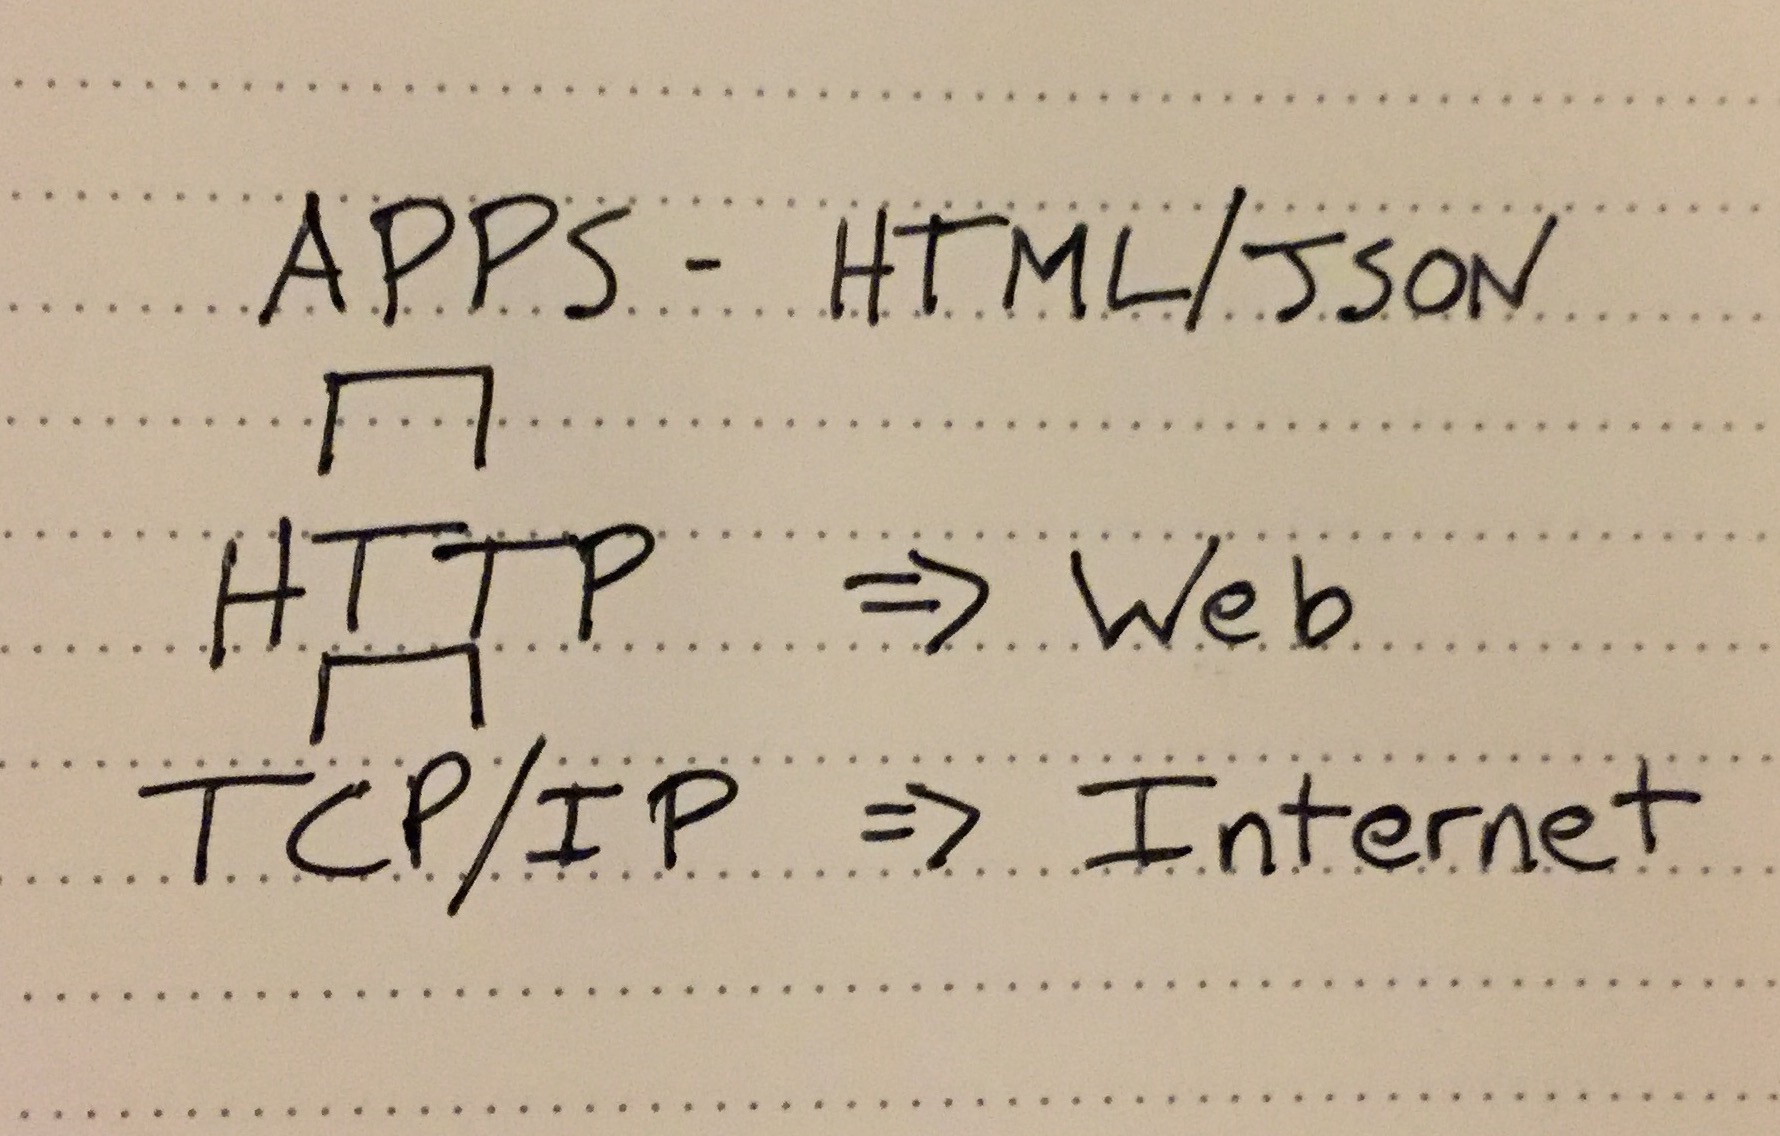 APPS - HTML/JSON
HTTP => Web
TCP/IP => Internet